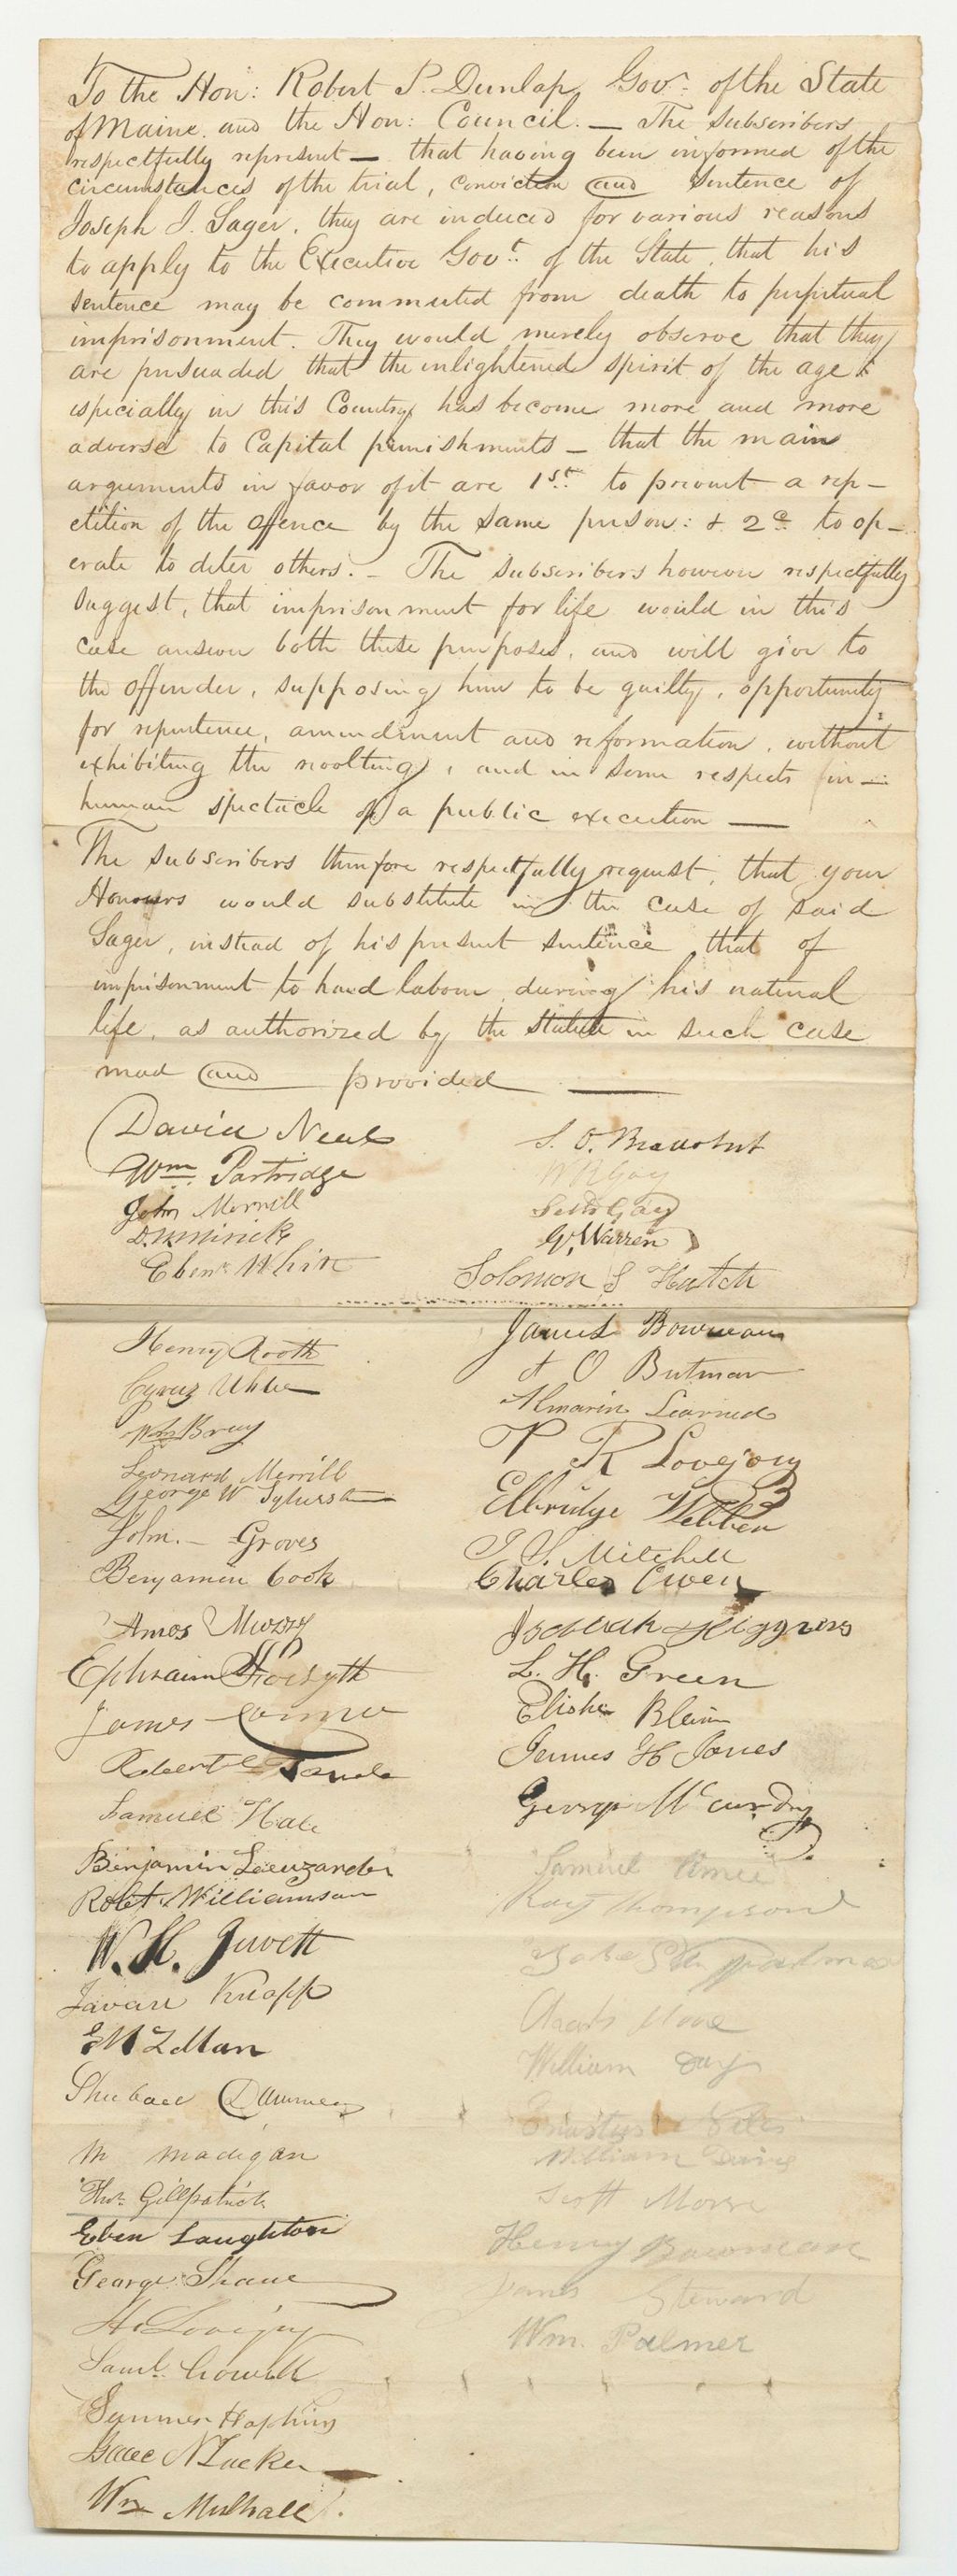 To the Hon: Robert P. Dunlap, Gov.r of the State
of Maine. and the Hon: Council. — The Subscribers
respectfully represent — that having been informed of the
circumstances of the trial, conviction and Sentence of
Joseph J. Sager, they are induced for various reasons
to apply to the Executive Gov.t of the State, that his
sentence may be commuted from death to perpetual
imprisonment. They would merely observe that they
are persuaded that the enlightened spirit of the age &
especially in this Country has become more and more
adverse to Capital punishments — that the main
arguments in favor of it are 1st. to prevent a rep-
etition of the offence by the same person: & 2d. to op-
erate to deter others. — The subscribers however respectfully
suggest, that imprisonment for life would in this
case answer both these purposes, and will give to
the offender, supposing him to be guilty, opportunity
for repentence, amendment and reformation, without
exhibiting the revolting, and in some respects in-
human spectacle of a public execution —
The subscribers therefore respectfully request, that your
Honours would substitute in the case of said
Sager, instead of his present sentence that of
imprisonment to hard labour during his natural
life, as authorized by the statute in such case
mad and provided —
David Neal
Wm. Partridge
John Merrill
D. Minick
Eben.r White
S. O. Bradstreet
W R Gay
Seth Gay
G. Warren
Solomon S Hatch
Henry Booth
Cyrus
Wm Bray
Leonard Merrill
George W Sylvester
John. — Groves
Benjamin Cook
Amos Muzzy
Ephraim Forsyth
James
Robert
Samuel Hale
Benjamin
Robt. Williamson
W. H. Jewett
Knapp
Shubael
M Madigan
Thos. Gillpatrick
Eben Laughton
George Shaw
H. Lovejoy
Saml. Crowell
Sumner Hopkins
Isaac N Tucker
Wm Mulhall
James Bowman
A O Butman
Almarin Learned
P R Lovejoy
Elbridge Webber
J S. Mitchell
Charles Owen
Jedediah Higgins
L. H. Green
Elisha Blain
James H Jones
George McCurdy
Samuel
Ray Thompson
Palmer
William Day
William
Scott Morse
Henry Bowman
James Steward
Wm. Palmer